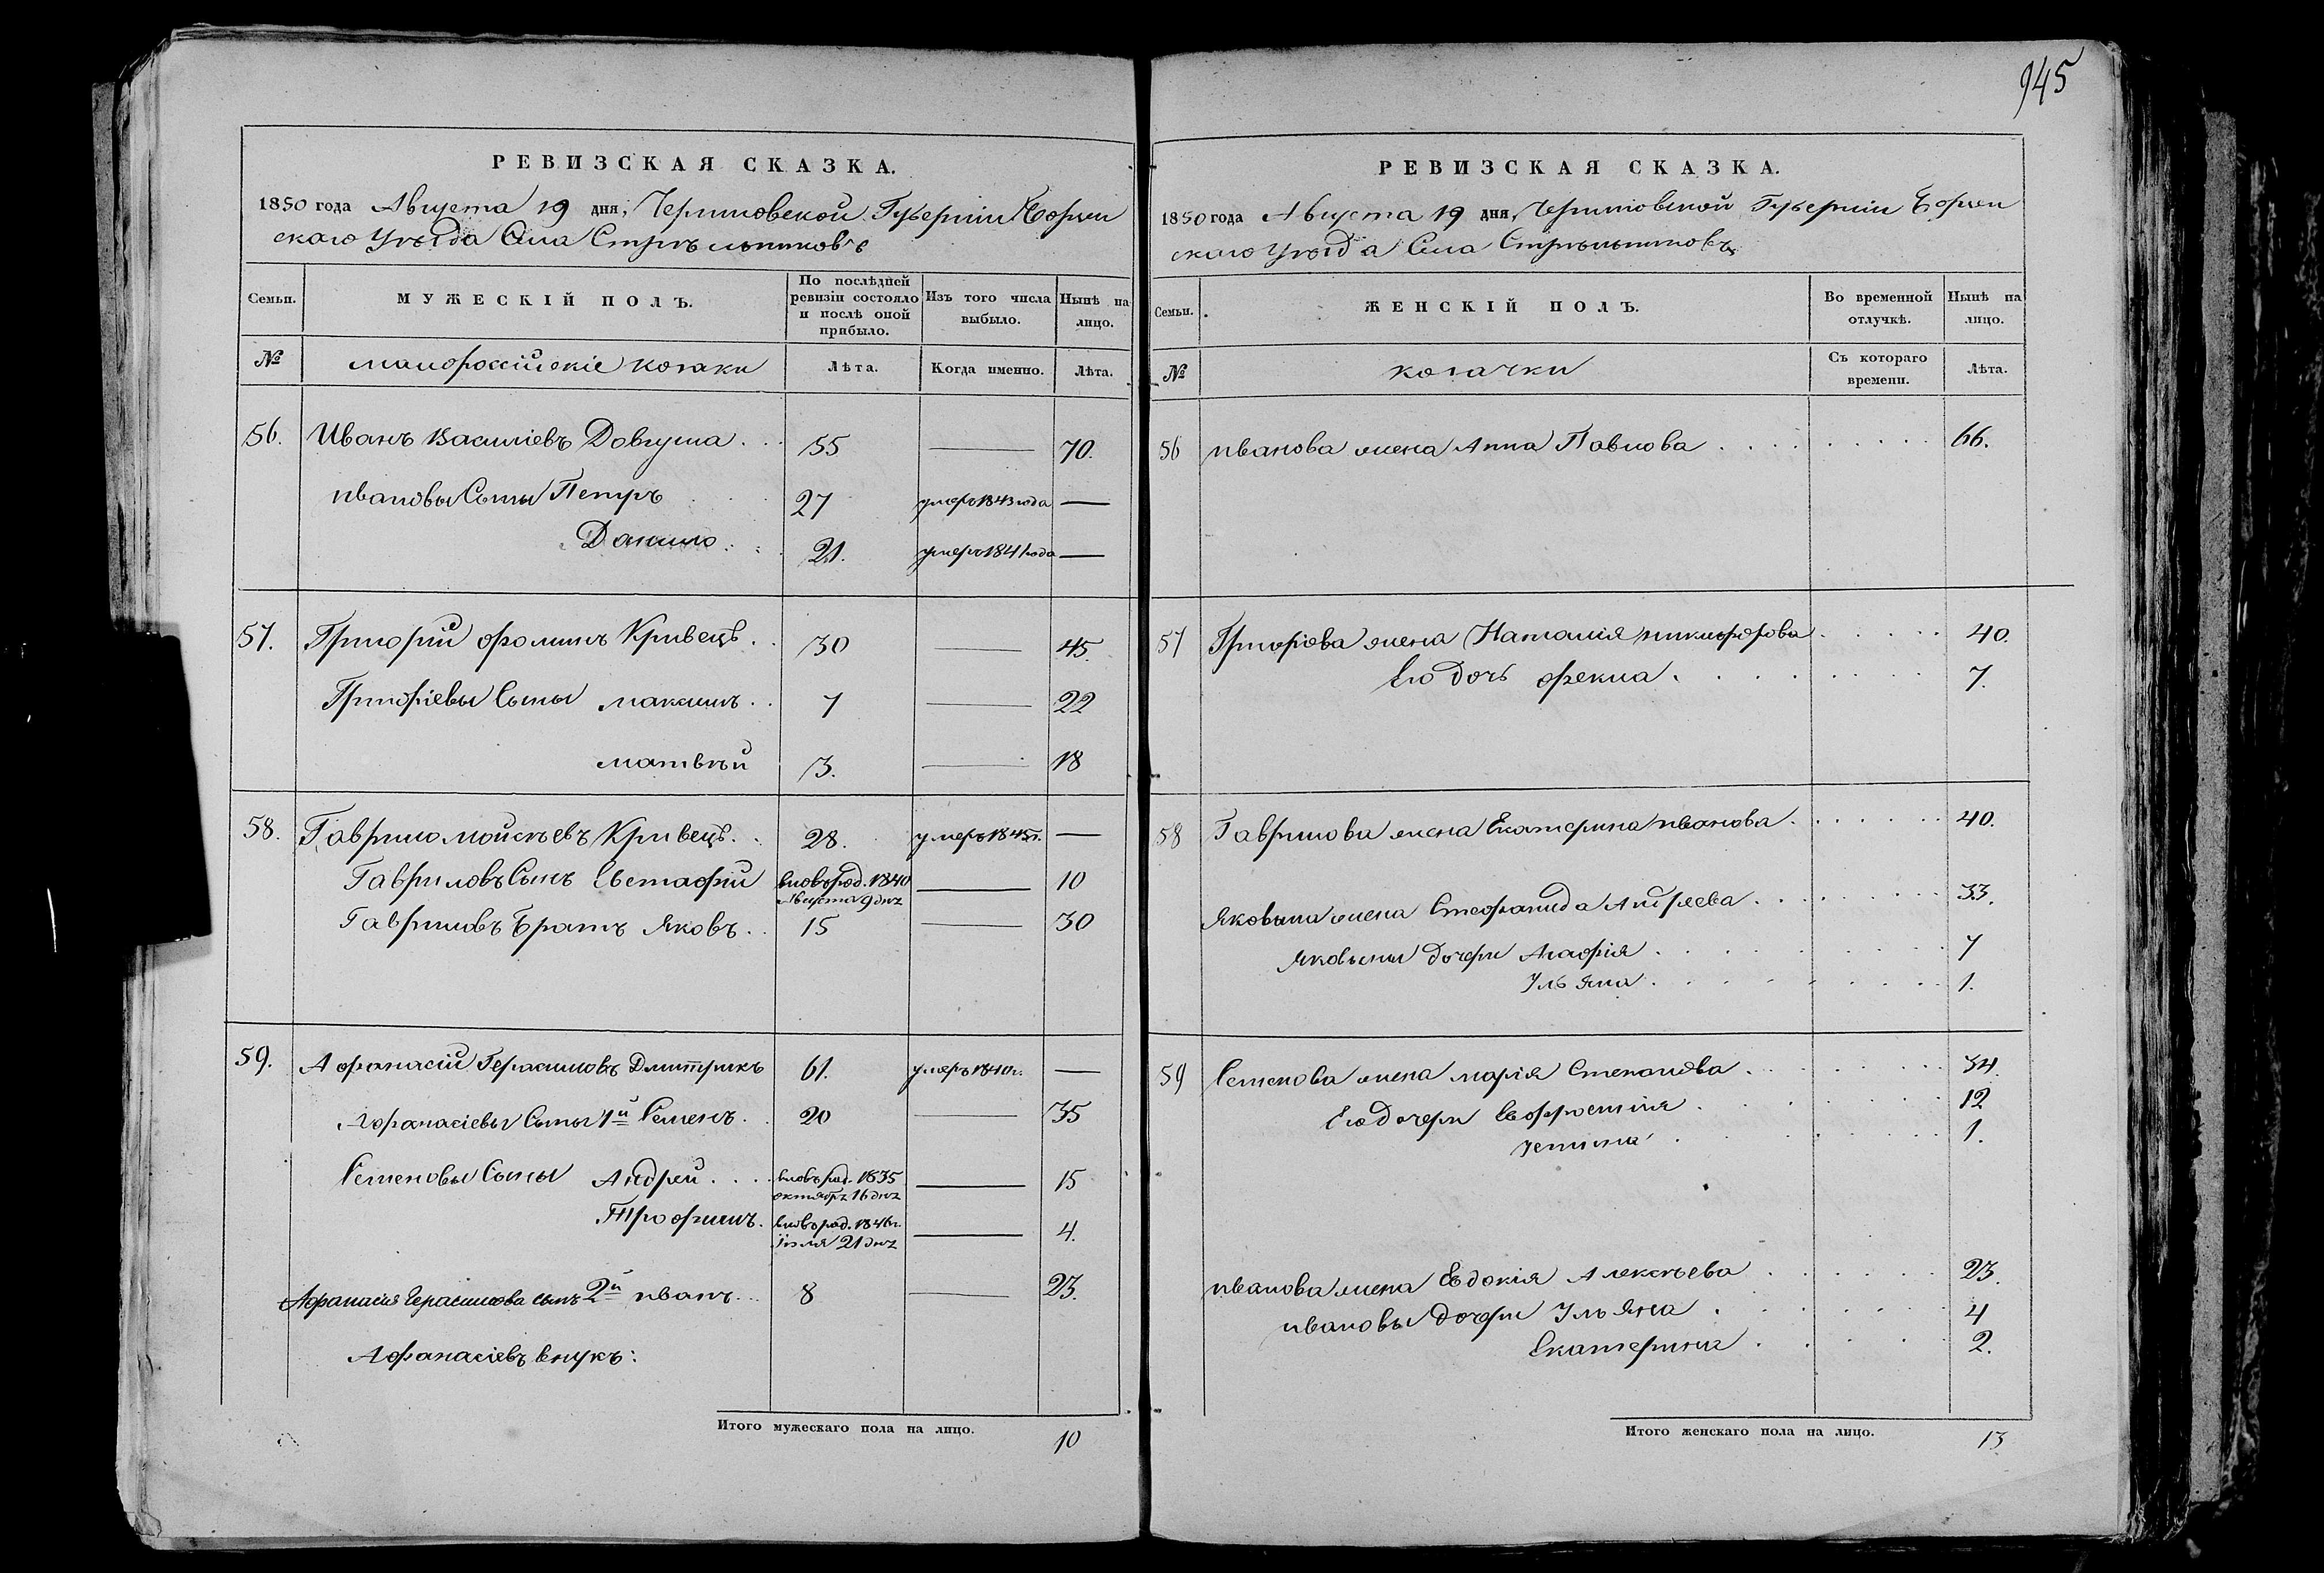 945
РЕВИЗСКАЯ СКАЗКА.
1850 года Августа 19 дня, Черниговской Губерніи Борзен
скаго Уѣзда Села Стрѣльниковъ
Семьи.
МУЖЕСКІЙ ПОЛЪ.
По послѣдней ревизіи состояло и послѣ оной прибыло.
Изъ того числа выбыло.
Нынѣ на лицо.
№
малороссійскіе козаки
Лѣта.
Когда именно.
Лѣта.
56. Иванъ Василіевъ Довгуша . . . 55 — 70.
ивановы Сыны Петръ . . . 27 умеръ 1843 года —
Данило . . . 21. умеръ 1841 года —
57. Григорій фоминъ Кривецъ . . 30 — 45.
Григоріевы Сыны максимъ . . 7 — 22
матвѣй 3. — 18
58. Гаврило мойсѣевъ Кривецъ . . 28. умеръ 1845 г. —
Гавриловъ Сынъ Евстафій вновь род. 1840 Августа 9 дня — 10
Гавриловъ Братъ Яковъ . . 15 — 30
59. Афанасій Герасимовъ Дмитрикъ 61. умеръ 1840 г. —
Афанасіевы Сыны 1й Семенъ . . 20 — 35
Семеновы Сыны Андрей . . . . вновь род. 1835 октября 16 дня — 15
Трофимъ . вновь род. 1846 г. Іюля 21 дня — 4.
Афанасія Герасимова сынъ 2й иванъ . . 8 — 23.
Афанасіевъ внукъ:
Итого мужескаго пола на лицо.
10
РЕВИЗСКАЯ СКАЗКА.
1850 года Августа 19 дня, Черниговской Губерніи Борзен
скаго Уѣзда Села Стрѣльниковъ
Семьи.
ЖЕНСКІЙ ПОЛЪ.
Во временной отлучкѣ.
Нынѣ на лицо.
№
козачки
Съ котораго времени.
Лѣта.
56 иванова жена Анна Павлова . . . . . . . . . 66.
57 Григоріева жена Наталія никифорова . . . . . 40.
Его дочь фекла . . . . . . . . 7.
58 Гаврилова жена Екатерина иванова . . . . . . 40.
Яковлива жена Стефанида Андреева . . . . . . . 33.
Яковлевы дочери Агафія . . . . . . . 7
Ульяна . . . . . . . . 1.
59 Семенова жена марія Степанова . . . . . . . 34.
Его дочери Евфросинія . . . . . . . 12
устина . . . . . . . 1.
иванова жена Евдокія Алексѣева . . . . . 23.
ивановы дочери Ульяна . . . . . . 4
Екатерина . . . . . 2.
Итого женскаго пола на лицо.
13